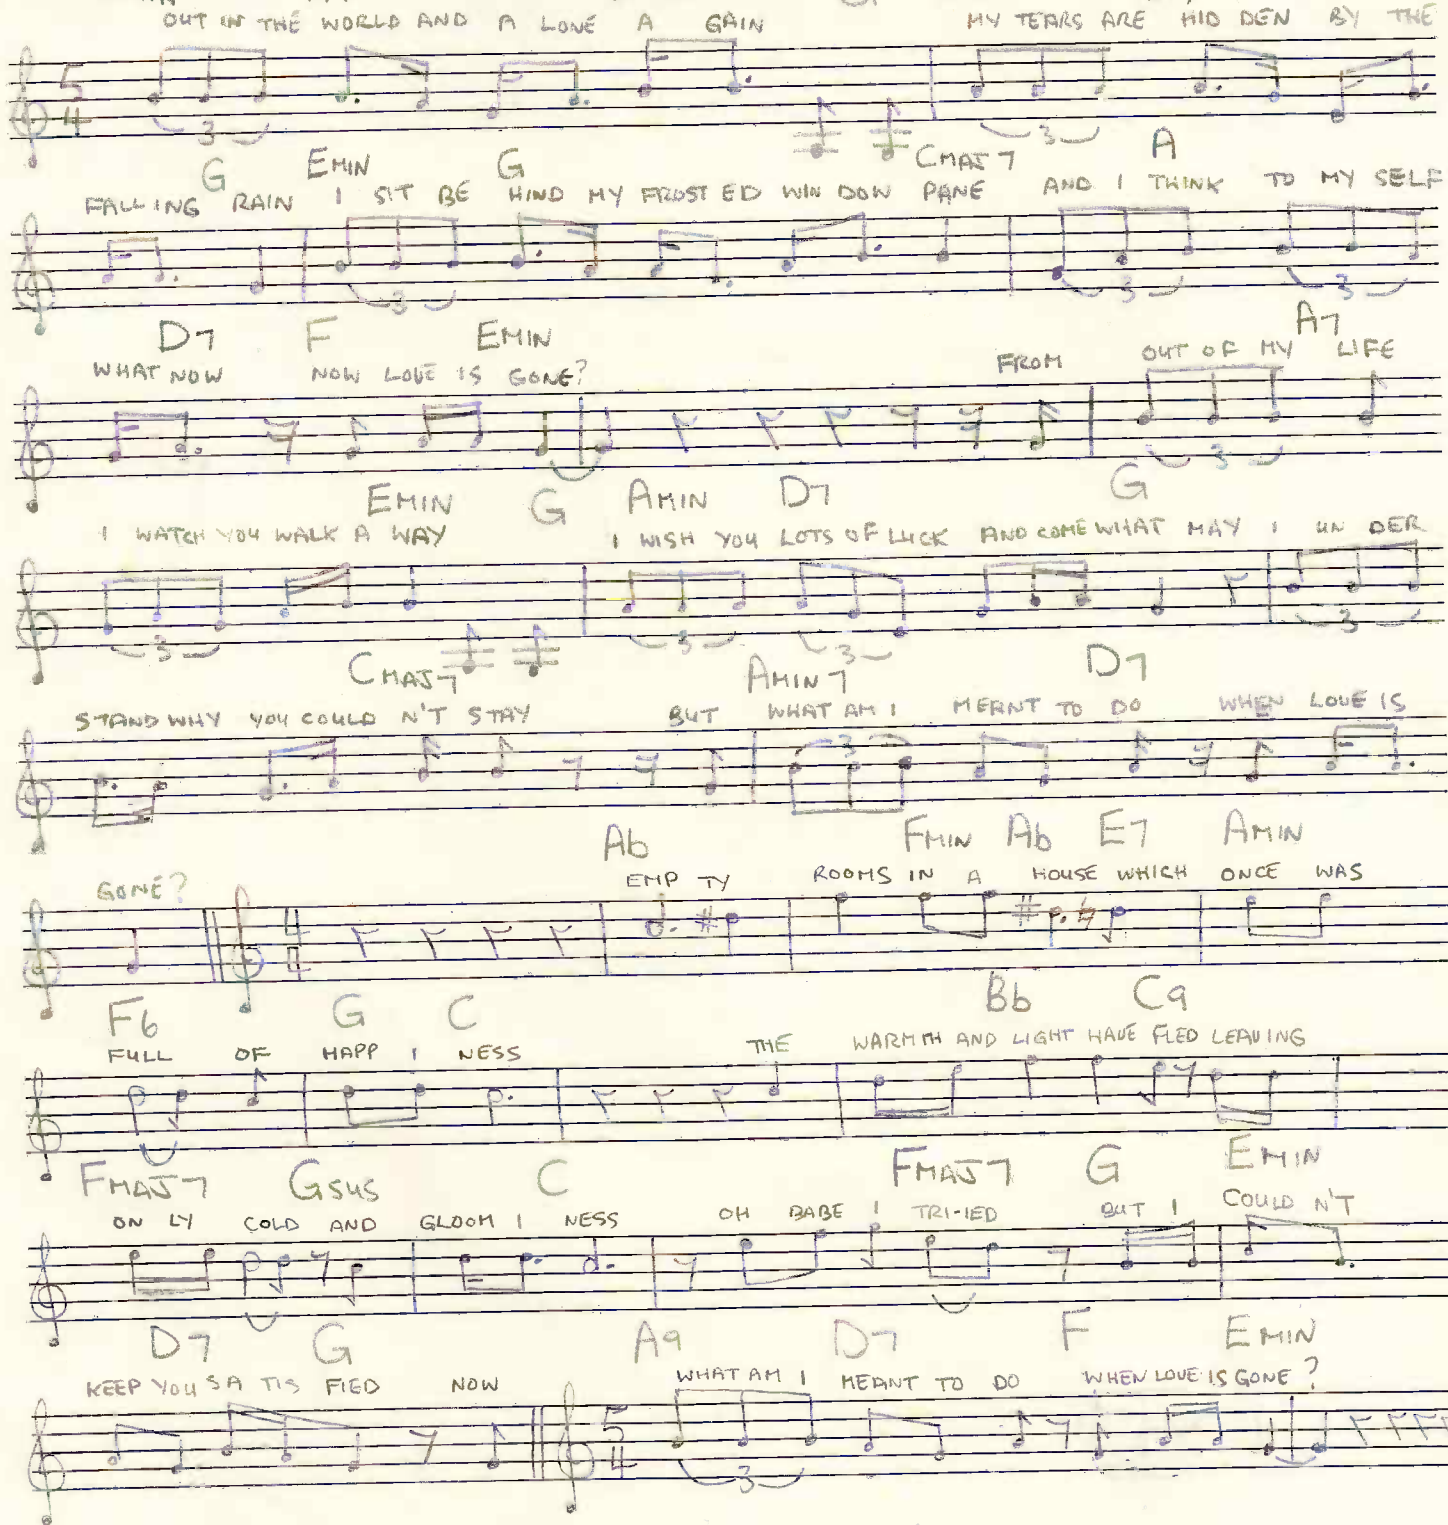 OUT IN THE WORLD AND A LONE A GAIN MY TEARS ARE HID DEN BY THE
5 4
3 3
G EMIN G CMAJ7 A
FALLING RAIN I SIT BE HIND MY FROST ED WIN DOW PANE AND I THINK TO MY SELF
3 3 3
D7 F EMIN A7
WHAT NOW NOW LOVE IS GONE? FROM OUT OF MY LIFE
3
EMIN G AMIN D7 G
I WATCH YOU WALK A WAY I WISH YOU LOTS OF LUCK AND COME WHAT MAY I UN DER
3 3 3 3
CMAJ7 AMIN7 D7
STAND WHY YOU COULD N'T STAY BUT WHAT AM I MEANT TO DO WHEN LOVE IS
3
Ab FMIN Ab E7 AMIN
GONE? EMP TY ROOMS IN A HOUSE WHICH ONCE WAS
4 4
F6 G C Bb C9
FULL OF HAPP I NESS THE WARMTH AND LIGHT HAVE FLED LEAVING
FMAJ7 GSUS C FMAJ7 G EMIN
ON LY COLD AND GLOOM I NESS OH BABE I TRI-IED BUT I COULD N'T
D7 G A9 D7 F EMIN
KEEP YOU SA TIS FIED NOW WHAT AM I MEANT TO DO WHEN LOVE IS GONE?
5 4
3